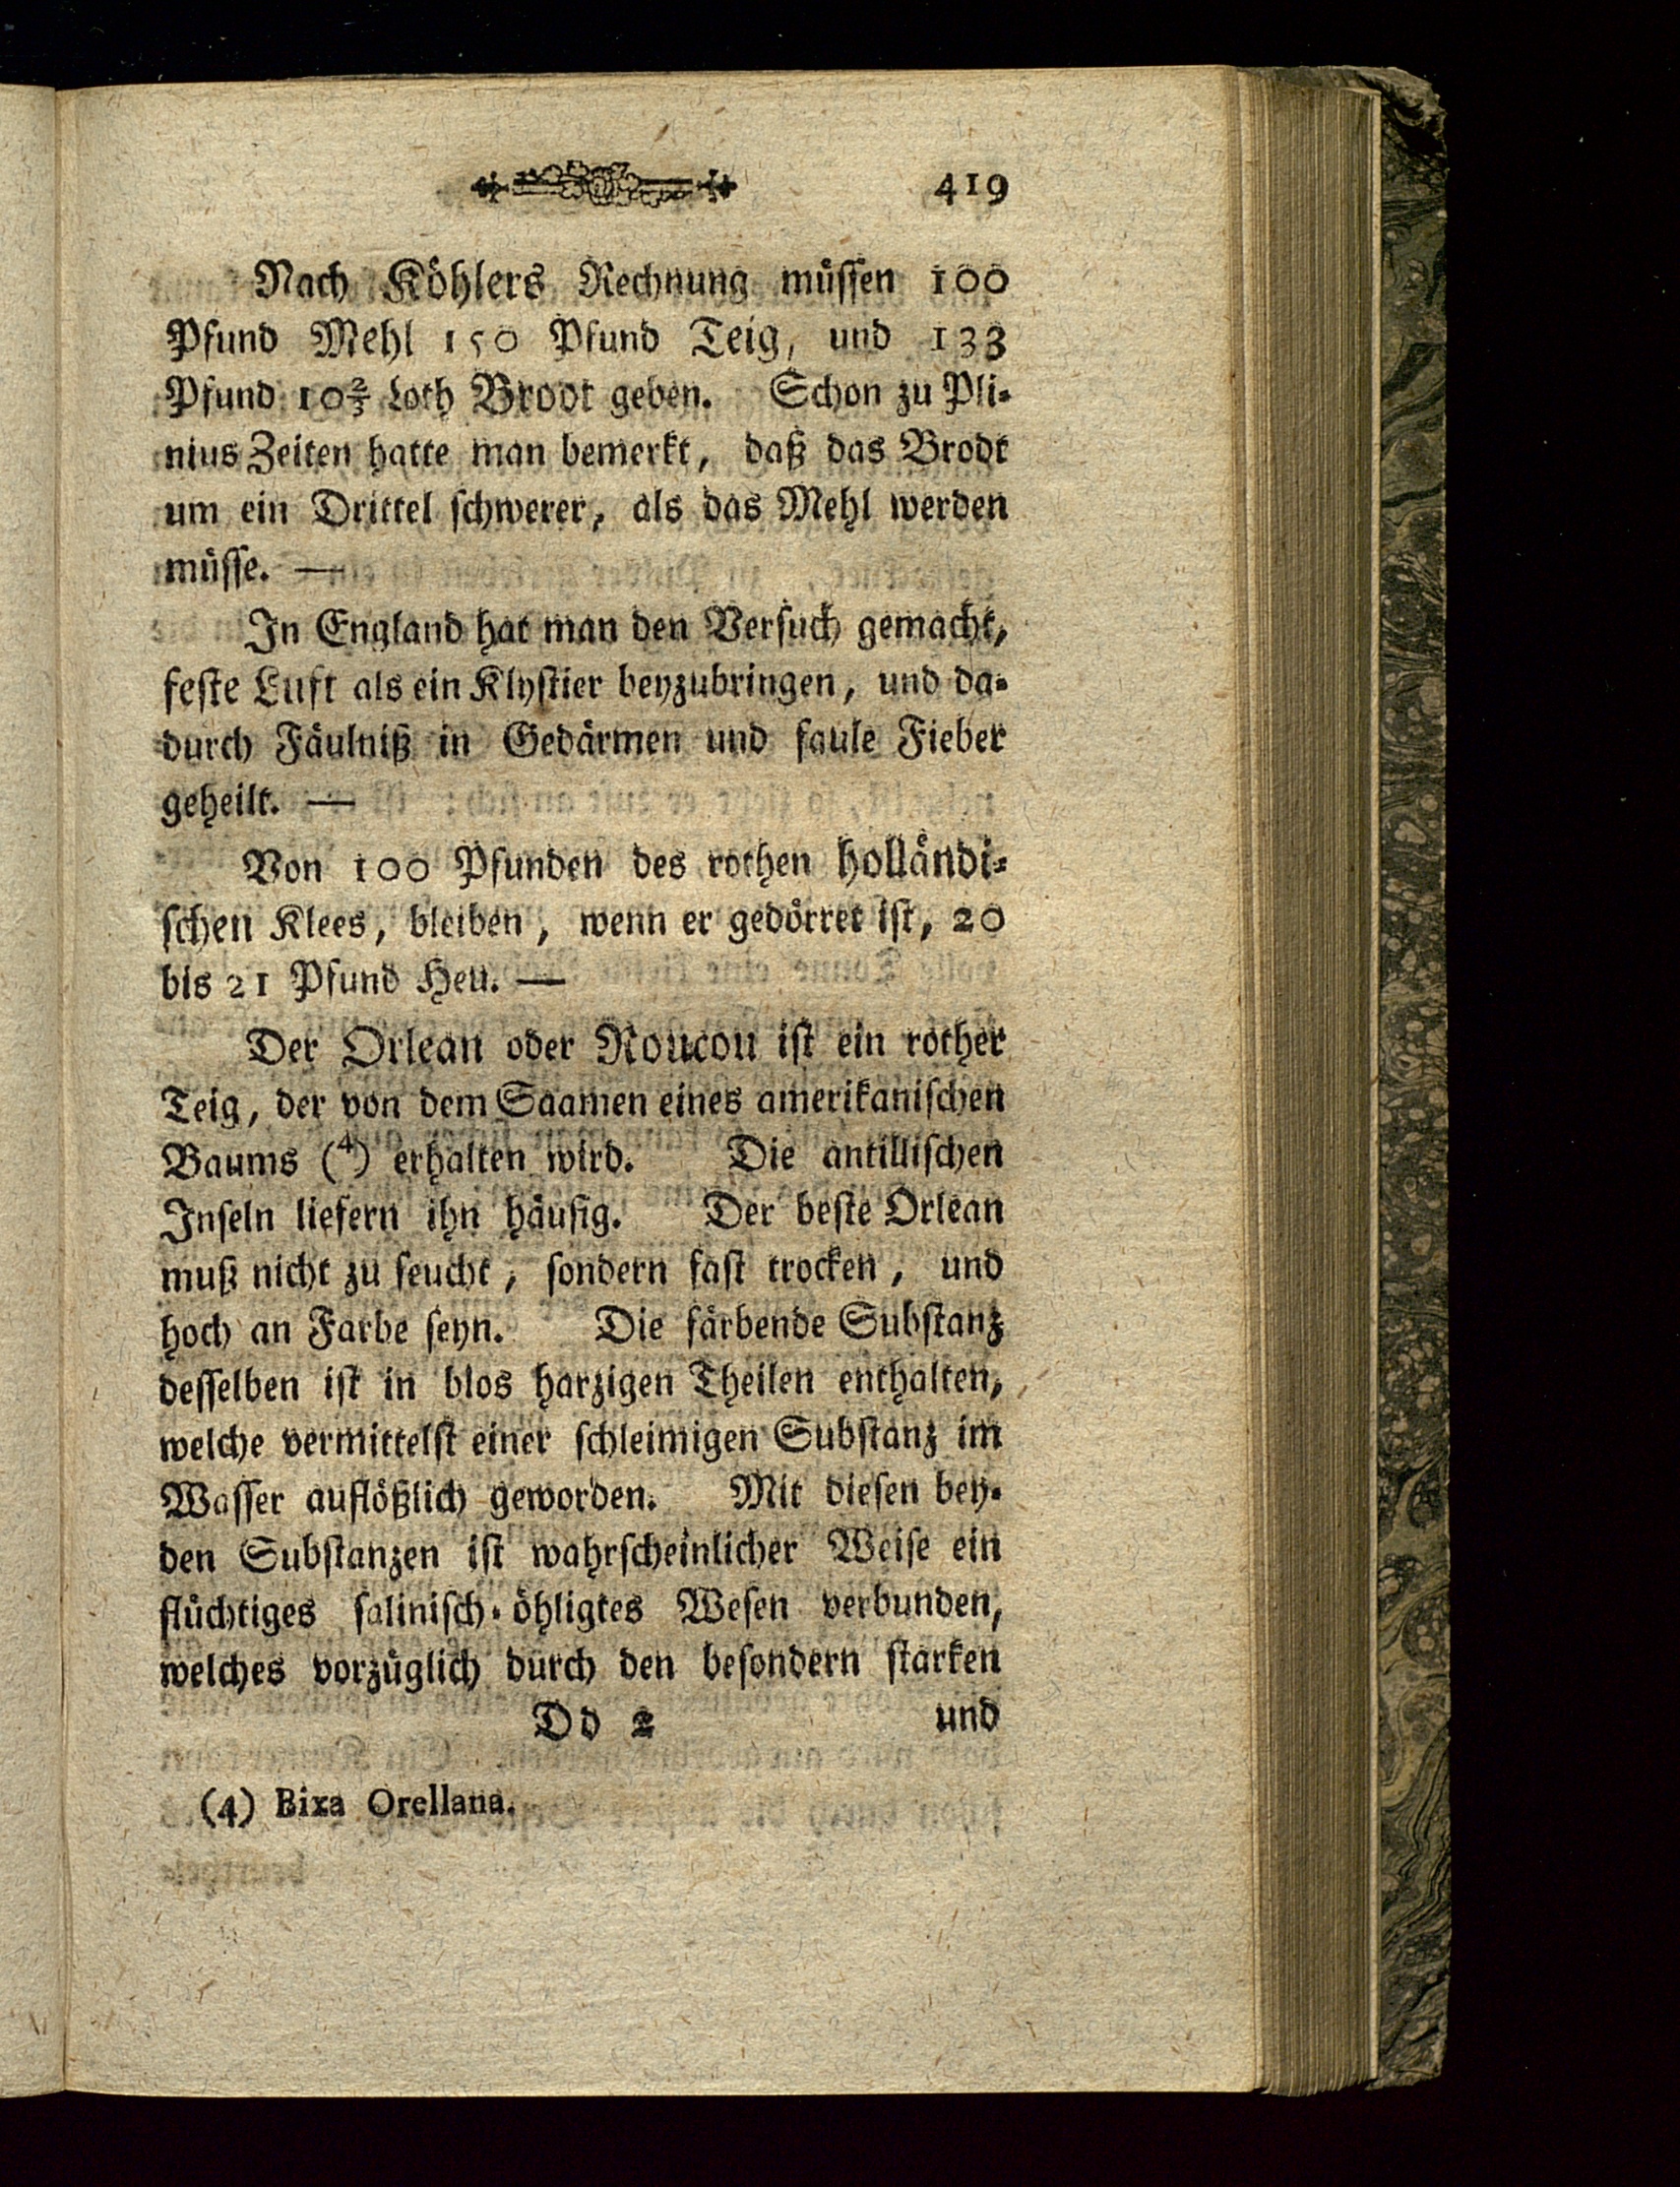 419
Nach Köhlers Rechnung müssen 100
Pfund Mehl 150 Pfund Teig, und 133
Pfund 10⅔ Loth Brodt geben. Schon zu Pli-
nius Zeiten hatte man bemerkt, daß das Brodt
um ein Drittel schwerer, als das Mehl werden
müsse. —
In England hat man den Versuch gemacht,
feste Luft als ein Klystier beyzubringen, und da-
durch Fäulniß in Gedärmen und faule Fieber
geheilt. —
Von 100 Pfunden des rothen holländi-
schen Klees, bleiben, wenn er gedörret ist, 20
bis 21 Pfund Heu. —
Der Orlean oder Roucou ist ein rother
Teig, der von dem Saamen eines amerikanischen
Baums (4) erhalten wird. Die antillischen
Inseln liefern ihn häufig. Der beste Orlean
muß nicht zu feucht, sondern fast trocken, und
hoch an Farbe seyn. Die färbende Substanz
desselben ist in blos harzigen Theilen enthalten,
welche vermittelst einer schleimigen Substanz im
Wasser auflößlich geworden. Mit diesen bey-
den Substanzen ist wahrscheinlicher Weise ein
flüchtiges salinisch-öhligtes Wesen verbunden,
welches vorzüglich durch den besondern starken
Dd 2 und
(4) Bixa Orellana.